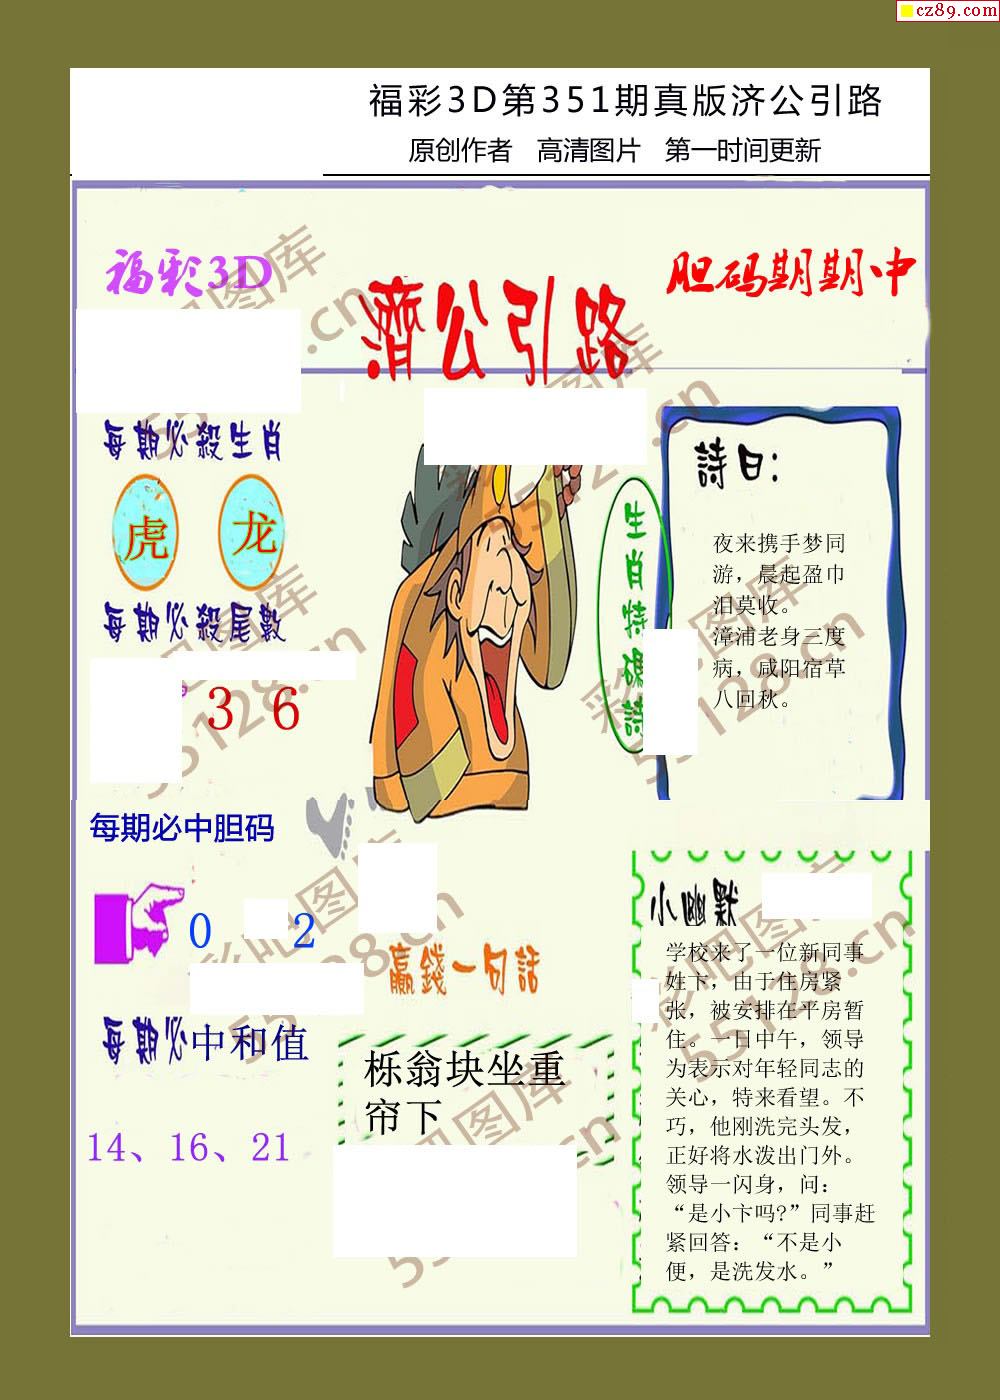 cz89.com
福彩3D第351期真版济公引路
原创作者 高清图片 第一时间更新
福彩3D
胆码期期中
濟公引路
每期必殺生肖
虎 龙
每期必殺尾數
3 6
每期必中胆码
0 2
每期必中和值
14、16、21
生肖特碼詩
詩曰：
夜来携手梦同
游，晨起盈巾
泪莫收。
漳浦老身三度
病，咸阳宿草
八回秋。
贏錢一句話
栎翁块坐重
帘下
小幽默
学校来了一位新同事
姓卞，由于住房紧
张，被安排在平房暂
住。一日中午，领导
为表示对年轻同志的
关心，特来看望。不
巧，他刚洗完头发，
正好将水泼出门外。
领导一闪身，问：
“是小卞吗?”同事赶
紧回答：“不是小
便，是洗发水。”
彩吧图库
55128.cn